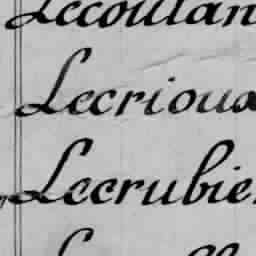 Lecoutan
Lecrioux
Lecrubie